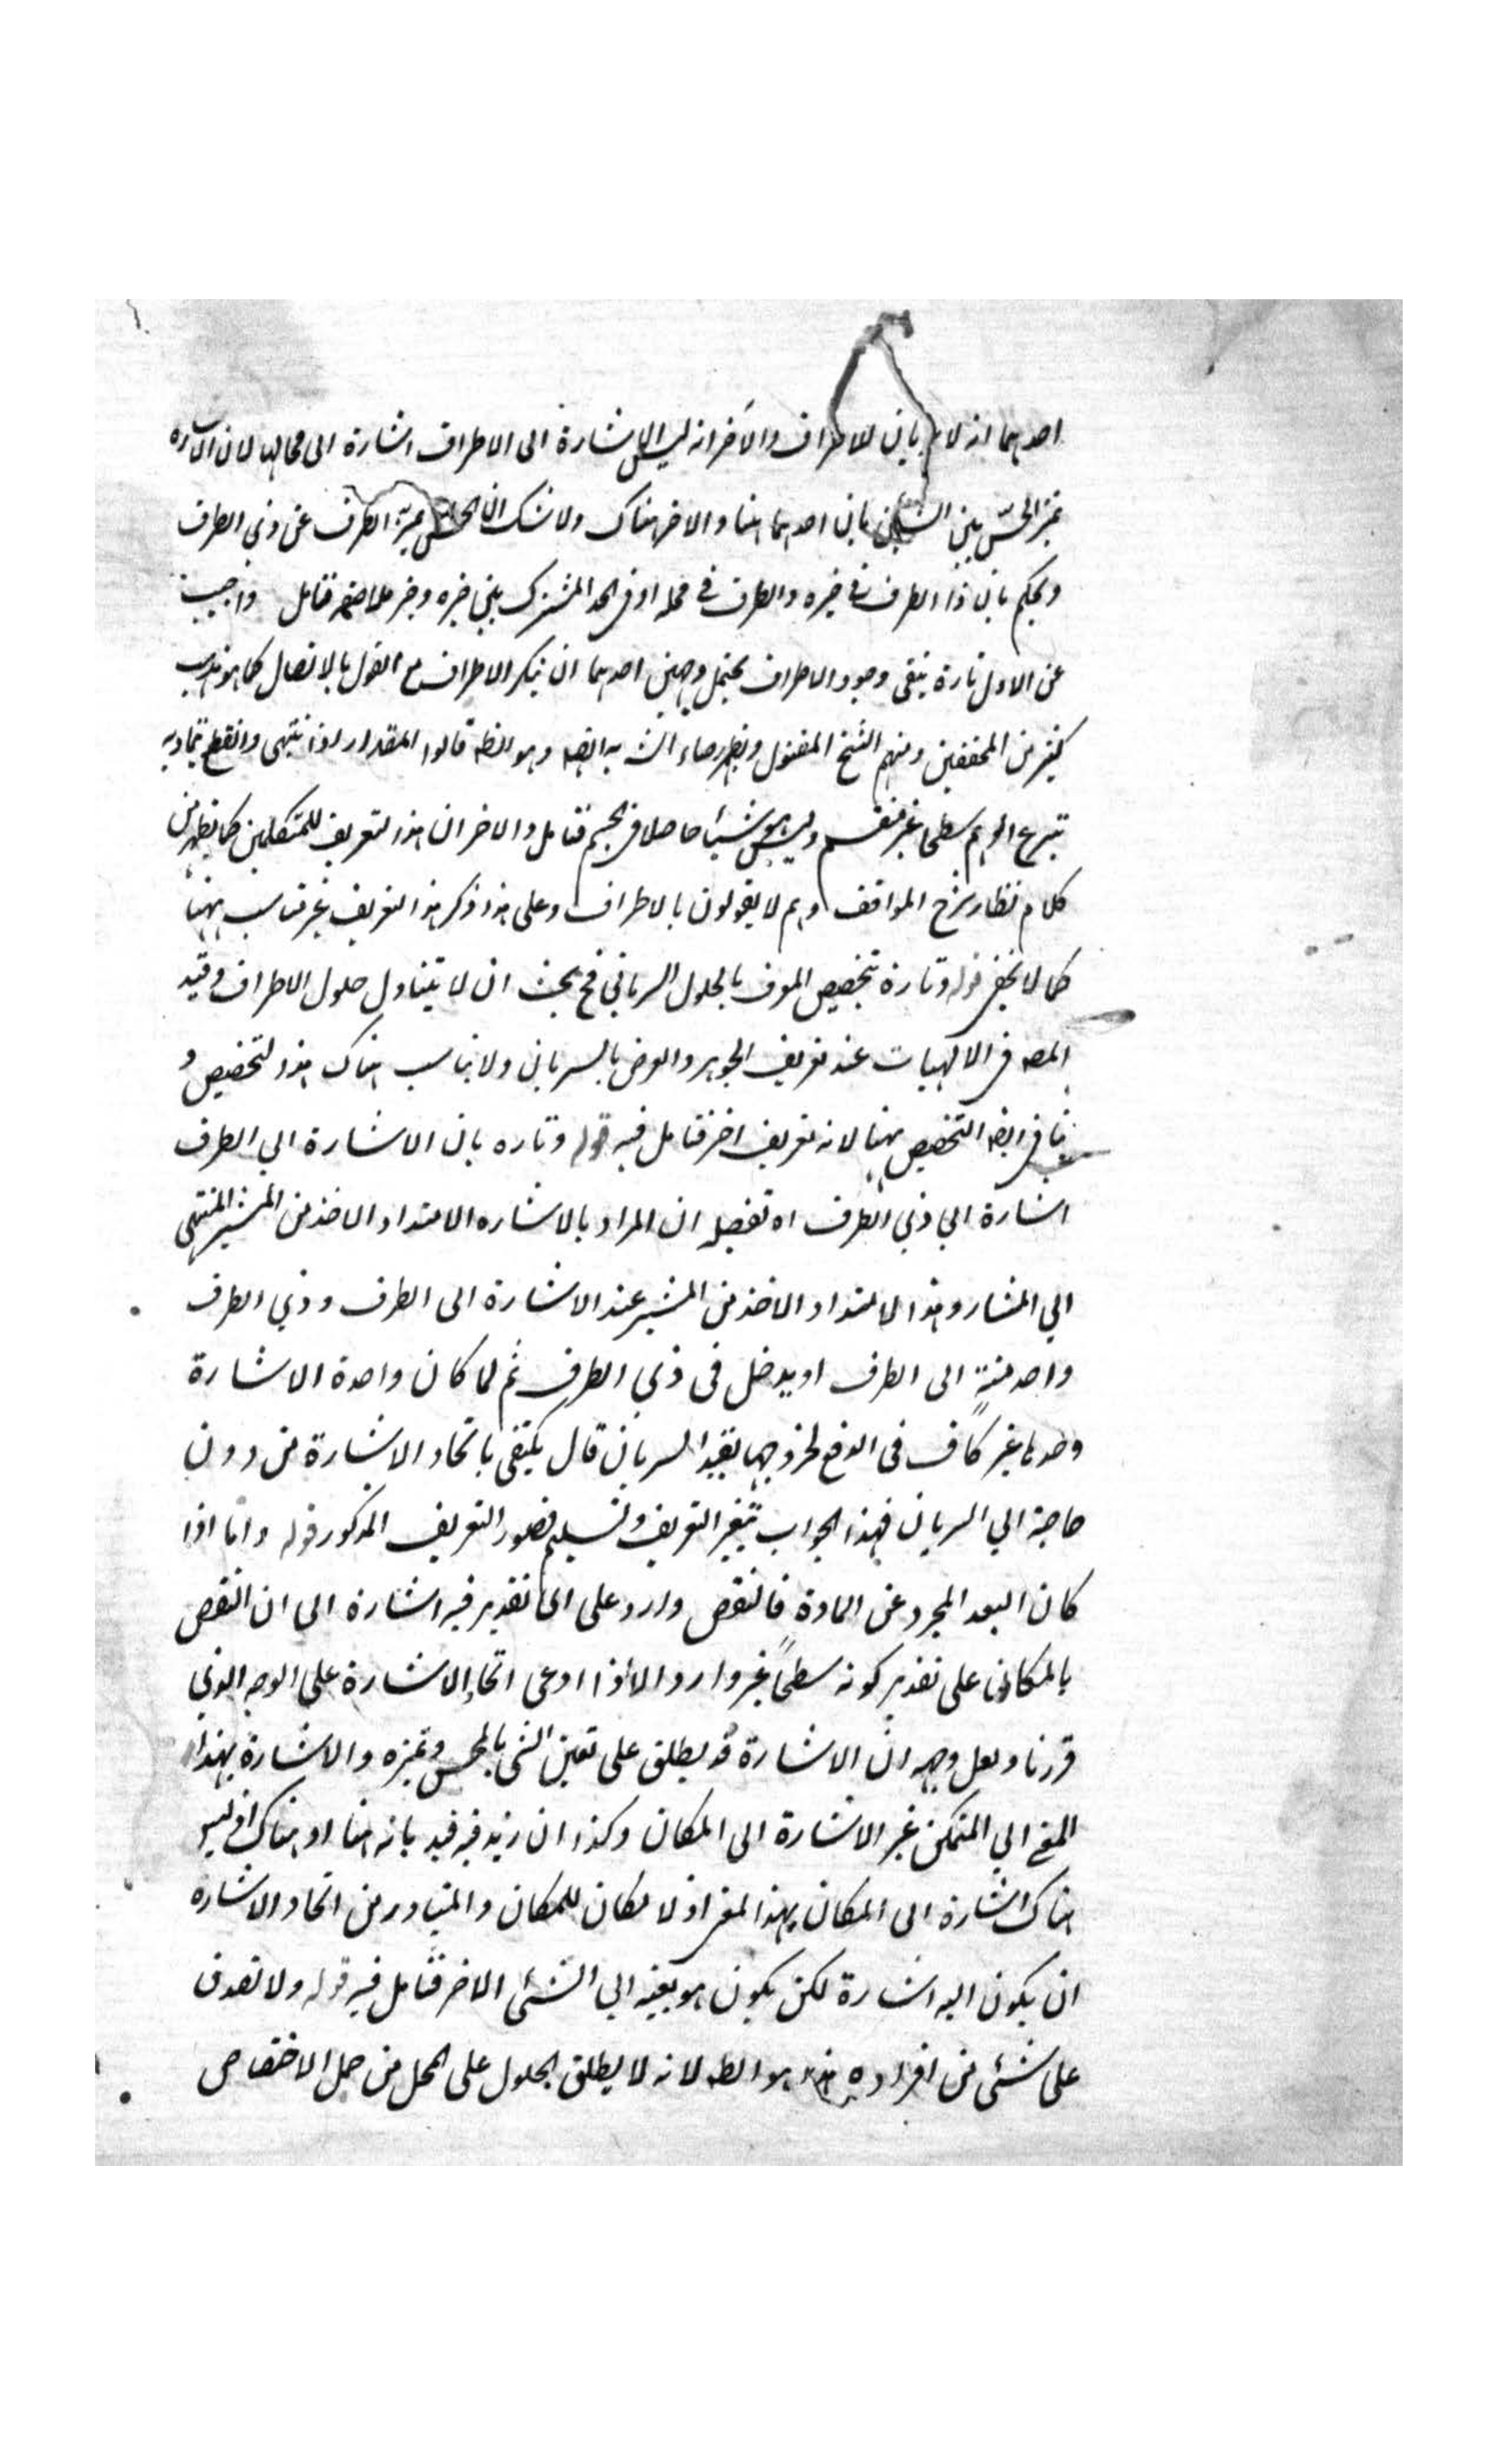 احدهما انه لا سريان للاطراف والآخر انه ليس الاشارة الى الاطراف اشارة الى محالها لان الاشارة
تميز الحس بين الشيئين بان احدهما هنا والاخر هناك ولا شك ان الحس يميز الطرف عن ذي الطرف
ويحكم بان ذا الطرف في حيزه والطرف في محله او في الحد المشترك بين حيزه وحيز ملاصقه فتامل واجيب
عن الاول تارة بنفي وجود الاطراف يحتمل وجهين احدهما ان ينكر الاطراف مع القول بالاتصال كما هو مذهب
كثير من المحققين ومنهم الشيخ المقتول وبظهر ايضه وهو الظه قالوا المقدار اذا انتهى وانقطع تماديه
الوهم سطحا غير منقسم وليس هو شيئا حاصلا في الجسم فتامل والاخر ان هذا التعريف للمتكلمين كما يظهر من
كلام نظار شرح المواقف وهم لا يقولون بالاطراف وعلى هذا ذكر هذا التعريف غير مناسب ههنا
كما لا يخفى قوله وتارة بتخصيص المعرف بالحلول السرياني فح بحث ان لا يتناول حلول الاطراف وقيد
المصه في الالهيات عند تعريف الجوهر والعرض بالسرياني ولا يناسب هناك هذا التخصيص و
ينافي ايضه التخصيص ههنا لانه تعريف اخر فتامل فيه قوله وتاره بان الاشارة الى الطرف
اشارة الى ذي الطرف اه تفصيله ان المراد بالاشاره الامتداد الاخذ من المشير المنتهي
الى المشار وهذا الامتداد الاخذ من المشير عند الاشارة الى الطرف وذي الطرف
واحد منته الى الطرف او يدخل في ذي الطرف ثم لما كان واحدة الاشارة
وحدها غير كاف في الدفع لخروجها بقيد السريان قال يكتفي باتحاد الاشارة من دون
حاجة الى السريان فهذا الجواب بتغير التعريف وتسليم قصور التعريف المذكور قوله واما اذا
كان البعد المجرد عن المادة فالنقص وارد على اي تقدير فيه اشارة الى ان النقص
بالمكان على تقدير كونه سطحاً غير وارد الا اذا ادعى اتحاد الاشارة على الوجه الذي
قررنا ولعل وجهه ان الاشارة قد يطلق على تعين الشئ بالحس وتميزه والاشارة بهذا
المعنى الى المتمكن غير الاشارة الى المكان وكذا ان زيد فيه قيد بانه هنا او هناك اذ ليس
هناك اشارة الى المكان بهذا المعنى اذ لا مكان للمكان والمتبادر من اتحاد الاشاره
ان يكون اليه اشارة لكن يكون هو بعينه الى الشئ الاخر فتامل فيه قوله ولا تصدق
على شئ من افراده هذا هو الظه لانه لا يطلق الحلول على المحل من حمل الاختصاص